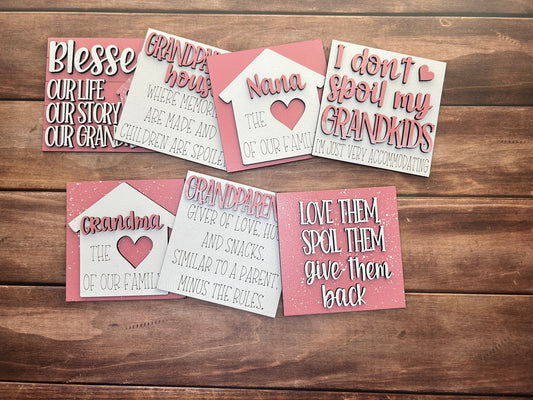 Blesse
OUR LIFE
OUR STORY
OUR GRAND
GRANDPAREN
hous
WHERE MEMOR
ARE MADE AND
CHILDREN ARE SPOILE
Nana
THE
OF OUR FAMIL
I don't
spoil my
GRANDKIDS
I'M JUST VERY ACCOMMODATING
Grandma
THE
OF OUR FAMIL
GRANDPAREN
GIVER OF LOVE, HU
AND SNACKS.
SIMILAR TO A PARENT,
MINUS THE RULES.
LOVE THEM,
SPOIL THEM
give them
back